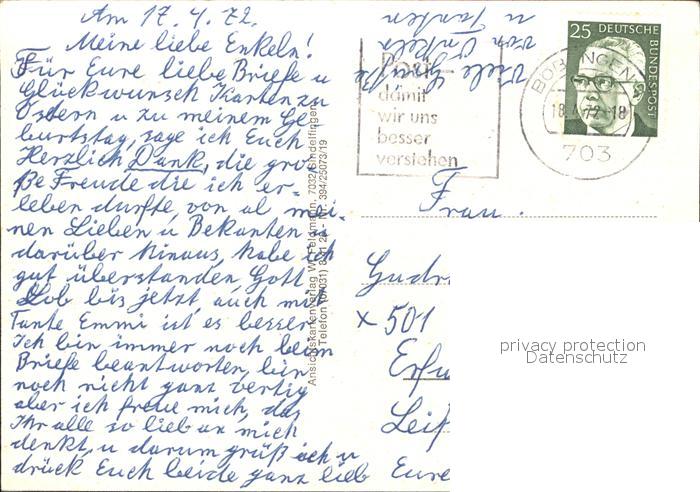 Am 17.4.72.
Meine liebe Enkeln!
Für Eure liebe Briefe u
Glückwunsch Karten zu
Ostern u zu meinem Ge-
burtstag, sage ich Euch
Herzlich Dank, die gro-
ße Freude die ich er-
leben durfte, von al mei-
nen Lieben u Bekanten u
darüber hinaus, habe ich
gut überstanden, Gott
Lob bis jetzt, auch mit
Tante Emmi ist es besser
Ich bin immer noch beim
Briefe beantworten, bin
noch nicht ganz vertig
aber ich freue mich, das
Ihr alle so lieb an mich
denkt, u darum grüß ich u
drück Euch beide ganz lieb
Eure
Viele Grüße
von Onkels
u Tanten
Ansichtskartenverlag W. Feldmann, 7032 Sindelfingen
Telefon (07031) 8 21 28 - Nr. 394/25073/19
Post-
damit
wir uns
besser
verstehen
25 DEUTSCHE
BUNDESPOST
18. 72-18
703
Frau
Gudr
x 501
Erfu
Leip
privacy protection
Datenschutz